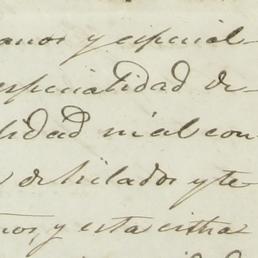 anos y especial-
especialidad de
lidad ni al con
de hilados y te
nos, y esta